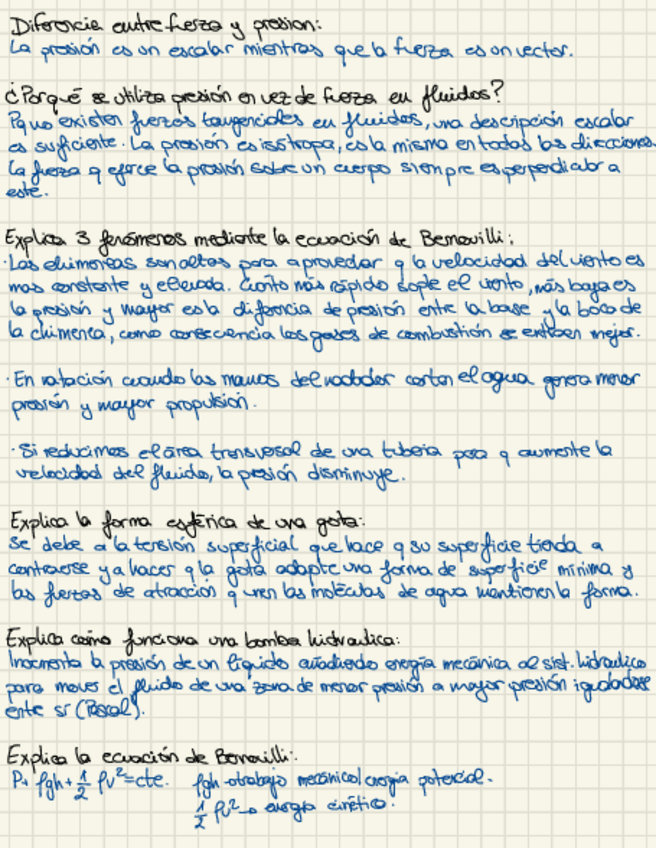 Diferencia entre fuerza y presion:
La presión es un escalar mientras que la fuerza es un vector.
¿Porqué se utiliza presión en vez de fuerza en fluidos?
Pq no existen fuerzas tangenciales en fluidos, una descripción escalar
es suficiente. La presión es isótropa, es la misma en todas las direcciones.
La fuerza q ejerce la presión sobre un cuerpo siempre es perpendicular a
este.
Explica 3 fenómenos mediante la ecuación de Bernouilli:
·Las chimeneas son altas para aprovechar q la velocidad del viento es
mas constante y elevada. Cuanto más rápido sople el viento, más baja es
la presión y mayor es la diferencia de presión entre la base y la boca de
la chimenea, como consecuencia los gases de combustión se extraen mejor.
·En natación cuando las manos del nadador cortan el agua genera menor
presión y mayor propulsión.
·Si reducimos el área transversal de una tubería para q aumente la
velocidad del fluido, la presión disminuye.
Explica la forma esférica de una gota:
Se debe a la tensión superficial que hace q su superficie tienda a
contraerse y a hacer q la gota adopte una forma de superficie mínima y
las fuerzas de atracción q unen las moléculas de agua mantienen la forma.
Explica cómo funciona una bomba hidraulica:
Incrementa la presión de un líquido añadiendo energía mecánica al sist. hidraulico
para mover el fluido de una zona de menor presión a mayor presión igualandose
entre sí (Pascal).
Explica la ecuación de Bernouilli:
P+ ρgh + 1/2 ρv²=cte. ρgh→trabajo mecánico/energia potencial.
1/2 ρv²→ energia cinética.